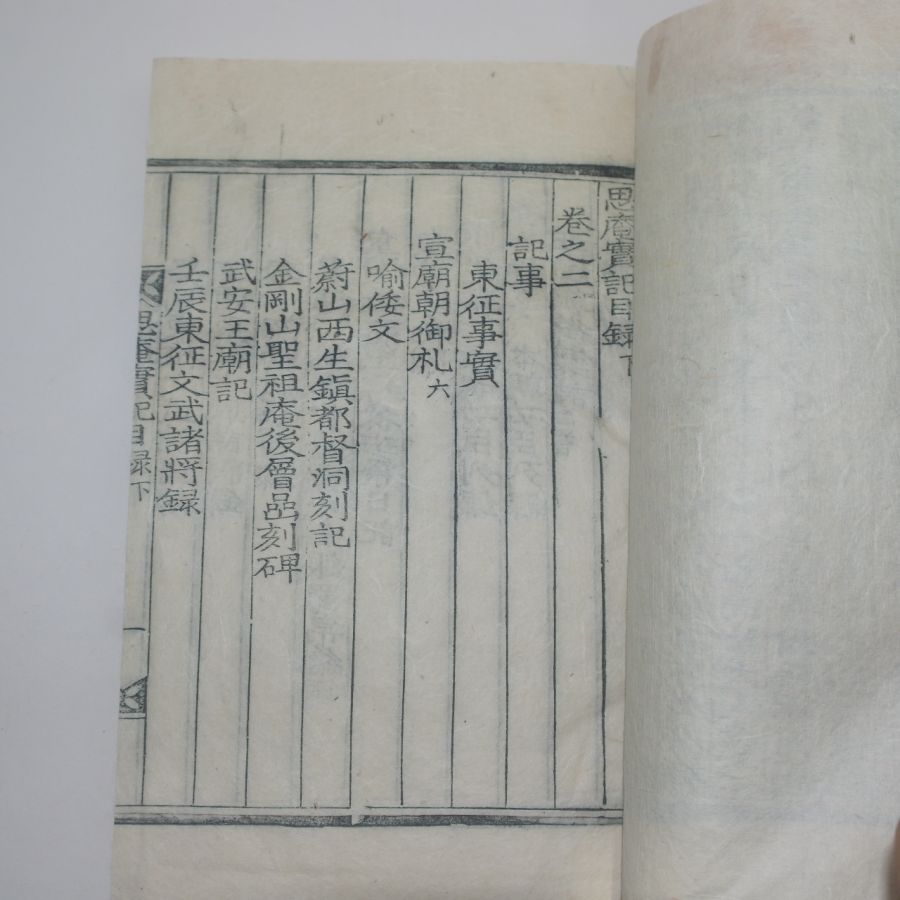 思庵實記目録下
卷之二
記事
東征事實
宣廟朝御札六
喻倭文
蔚山西生鎭都督洞刻記
金剛山聖祖庵後層嵒刻碑
武安王廟記
壬辰東征文武諸將録
思庵實記目録下